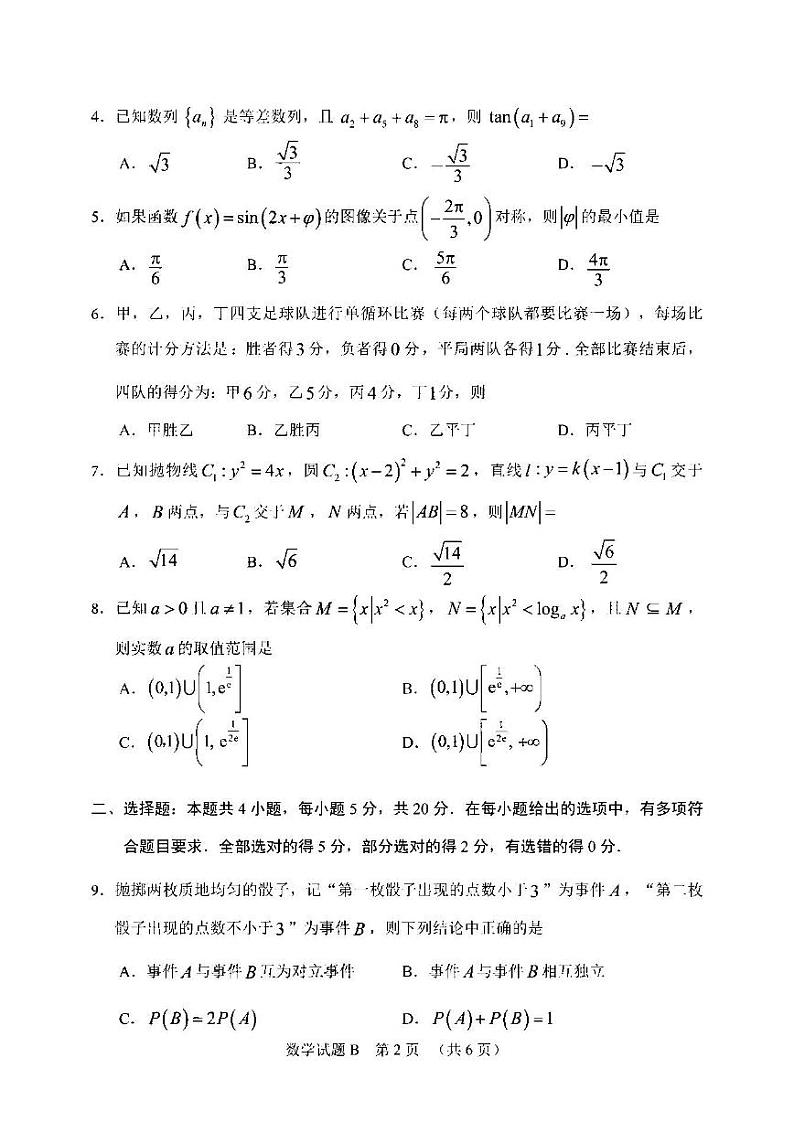 4. 已知数列 {aₙ} 是等差数列，且 a₂ + a₅ + a₈ = π，则 tan(a₁ + a₉) =
A. √3 B. √3/3 C. −√3/3 D. −√3
5. 如果函数 f(x) = sin(2x + φ) 的图像关于点(−2π/3, 0)对称，则|φ|的最小值是
A. π/6 B. π/3 C. 5π/6 D. 4π/3
6. 甲，乙，丙，丁四支足球队进行单循环比赛（每两个球队都要比赛一场），每场比
赛的计分方法是：胜者得3分，负者得0分，平局两队各得1分．全部比赛结束后，
四队的得分为：甲6分，乙5分，丙4分，丁1分，则
A. 甲胜乙 B. 乙胜丙 C. 乙平丁 D. 丙平丁
7. 已知抛物线C₁ : y² = 4x，圆C₂ : (x − 2)² + y² = 2，直线l : y = k(x − 1)与C₁交于
A，B两点，与C₂交于M，N两点，若|AB| = 8，则|MN| =
A. √14 B. √6 C. √14/2 D. √6/2
8. 已知a > 0且a ≠ 1，若集合M = {x|x² < x}，N = {x|x² < logₐ x}，且N ⊆ M，
则实数a的取值范围是
A. (0,1)∪(1, e^(1/e)] B. (0,1)∪[e^(1/e), +∞)
C. (0,1)∪(1, e^(1/2e)] D. (0,1)∪[e^(1/2e), +∞)
二、选择题：本题共 4 小题，每小题 5 分，共 20 分．在每小题给出的选项中，有多项符
合题目要求．全部选对的得 5 分，部分选对的得 2 分，有选错的得 0 分．
9. 抛掷两枚质地均匀的骰子，记“第一枚骰子出现的点数小于3”为事件A，“第二枚
骰子出现的点数不小于3”为事件B，则下列结论中正确的是
A. 事件A与事件B互为对立事件 B. 事件A与事件B相互独立
C. P(B) = 2P(A) D. P(A) + P(B) = 1
数学试题 B 第 2 页 （共 6 页）